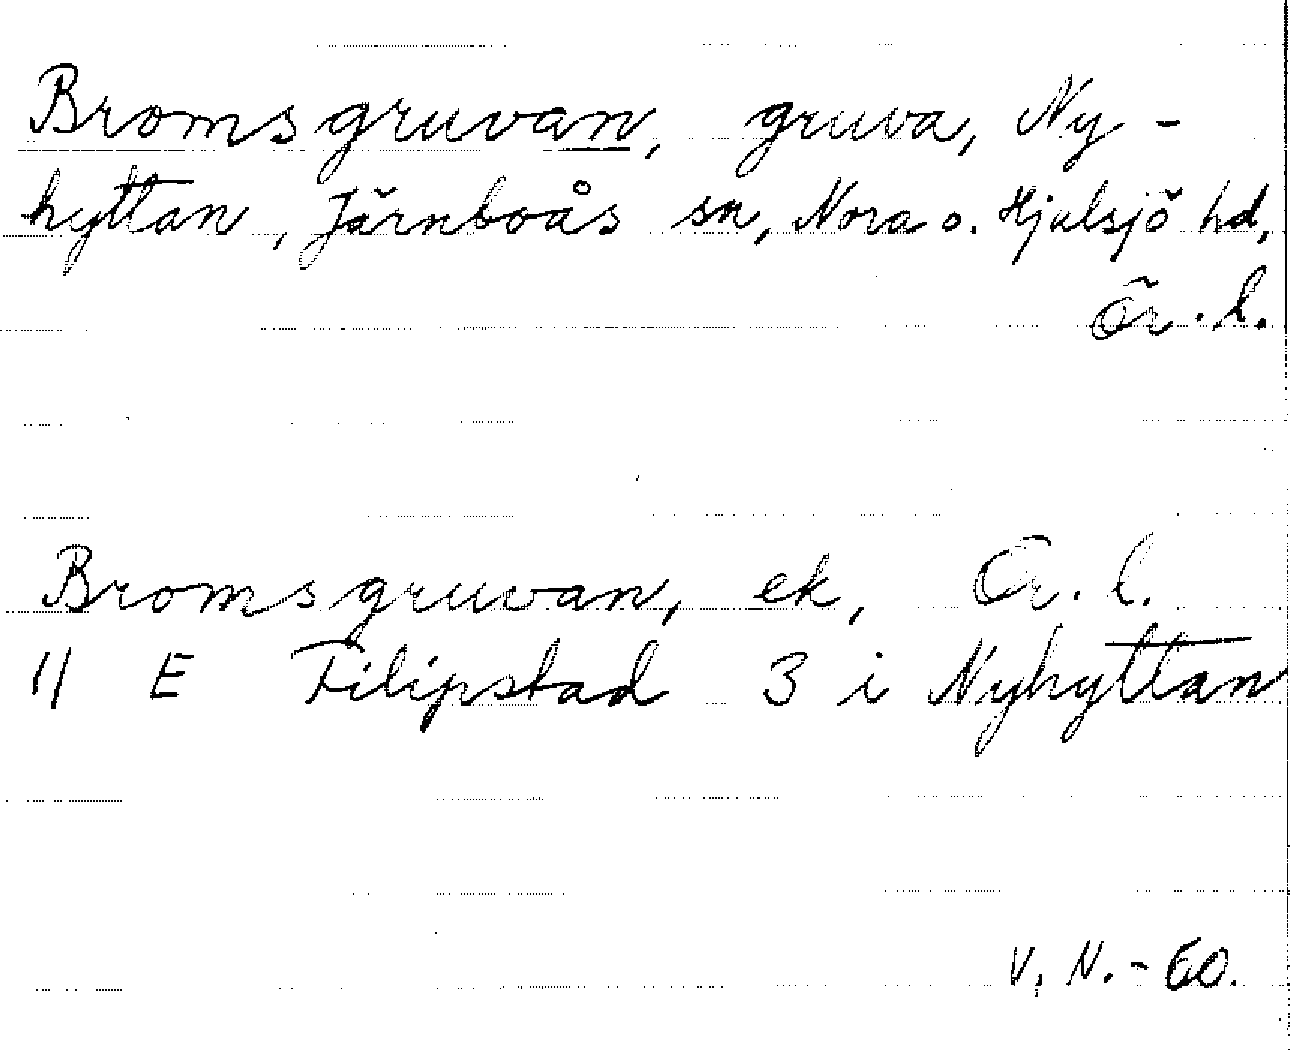 Bromsgruvan, gruva, Ny-
hyttan, Järnboås sn, Nora o. Hjulsjö hd,
Ör. l.
Bromsgruvan, ek, Ör. l.
11 E Filipstad 3 i Nyhyttan
V. N. - 60.